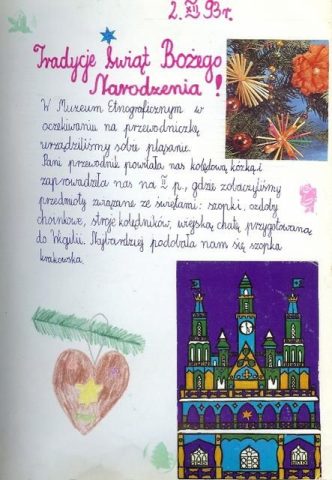 2. XII 93 r.
Tradycje Świąt Bożego
Narodzenia!
W Muzeum Etnograficznym w
oczekiwaniu na przewodniczkę
urządziliśmy sobie pląsanie.
Pani przewodnik powitała nas kolędową kózką i
zaprowadziła nas na II p., gdzie zobaczyliśmy
przedmioty związane ze świętami: szopki, ozdoby
choinkowe, stroje kolędników, wiejską chatę przygotowaną
do Wigilii. Najbardziej podobała nam się szopka
krakowska